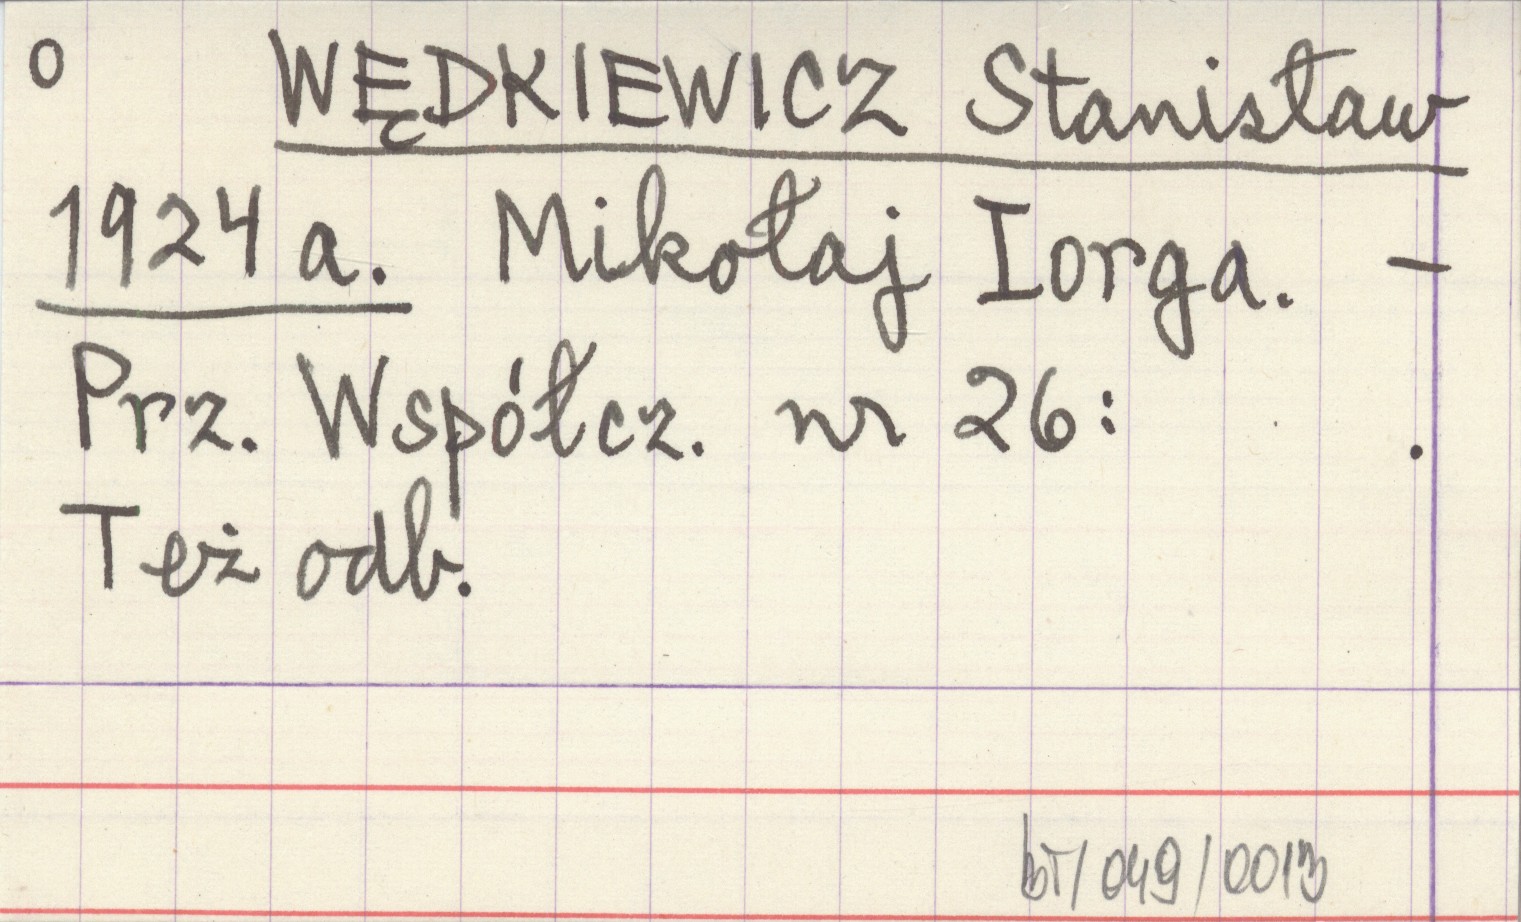 o WĘDKIEWICZ Stanisław
1924 a. Mikołaj Iorga. –
Prz. Współcz. nr 26: .
Też odb.
bT/049/0013